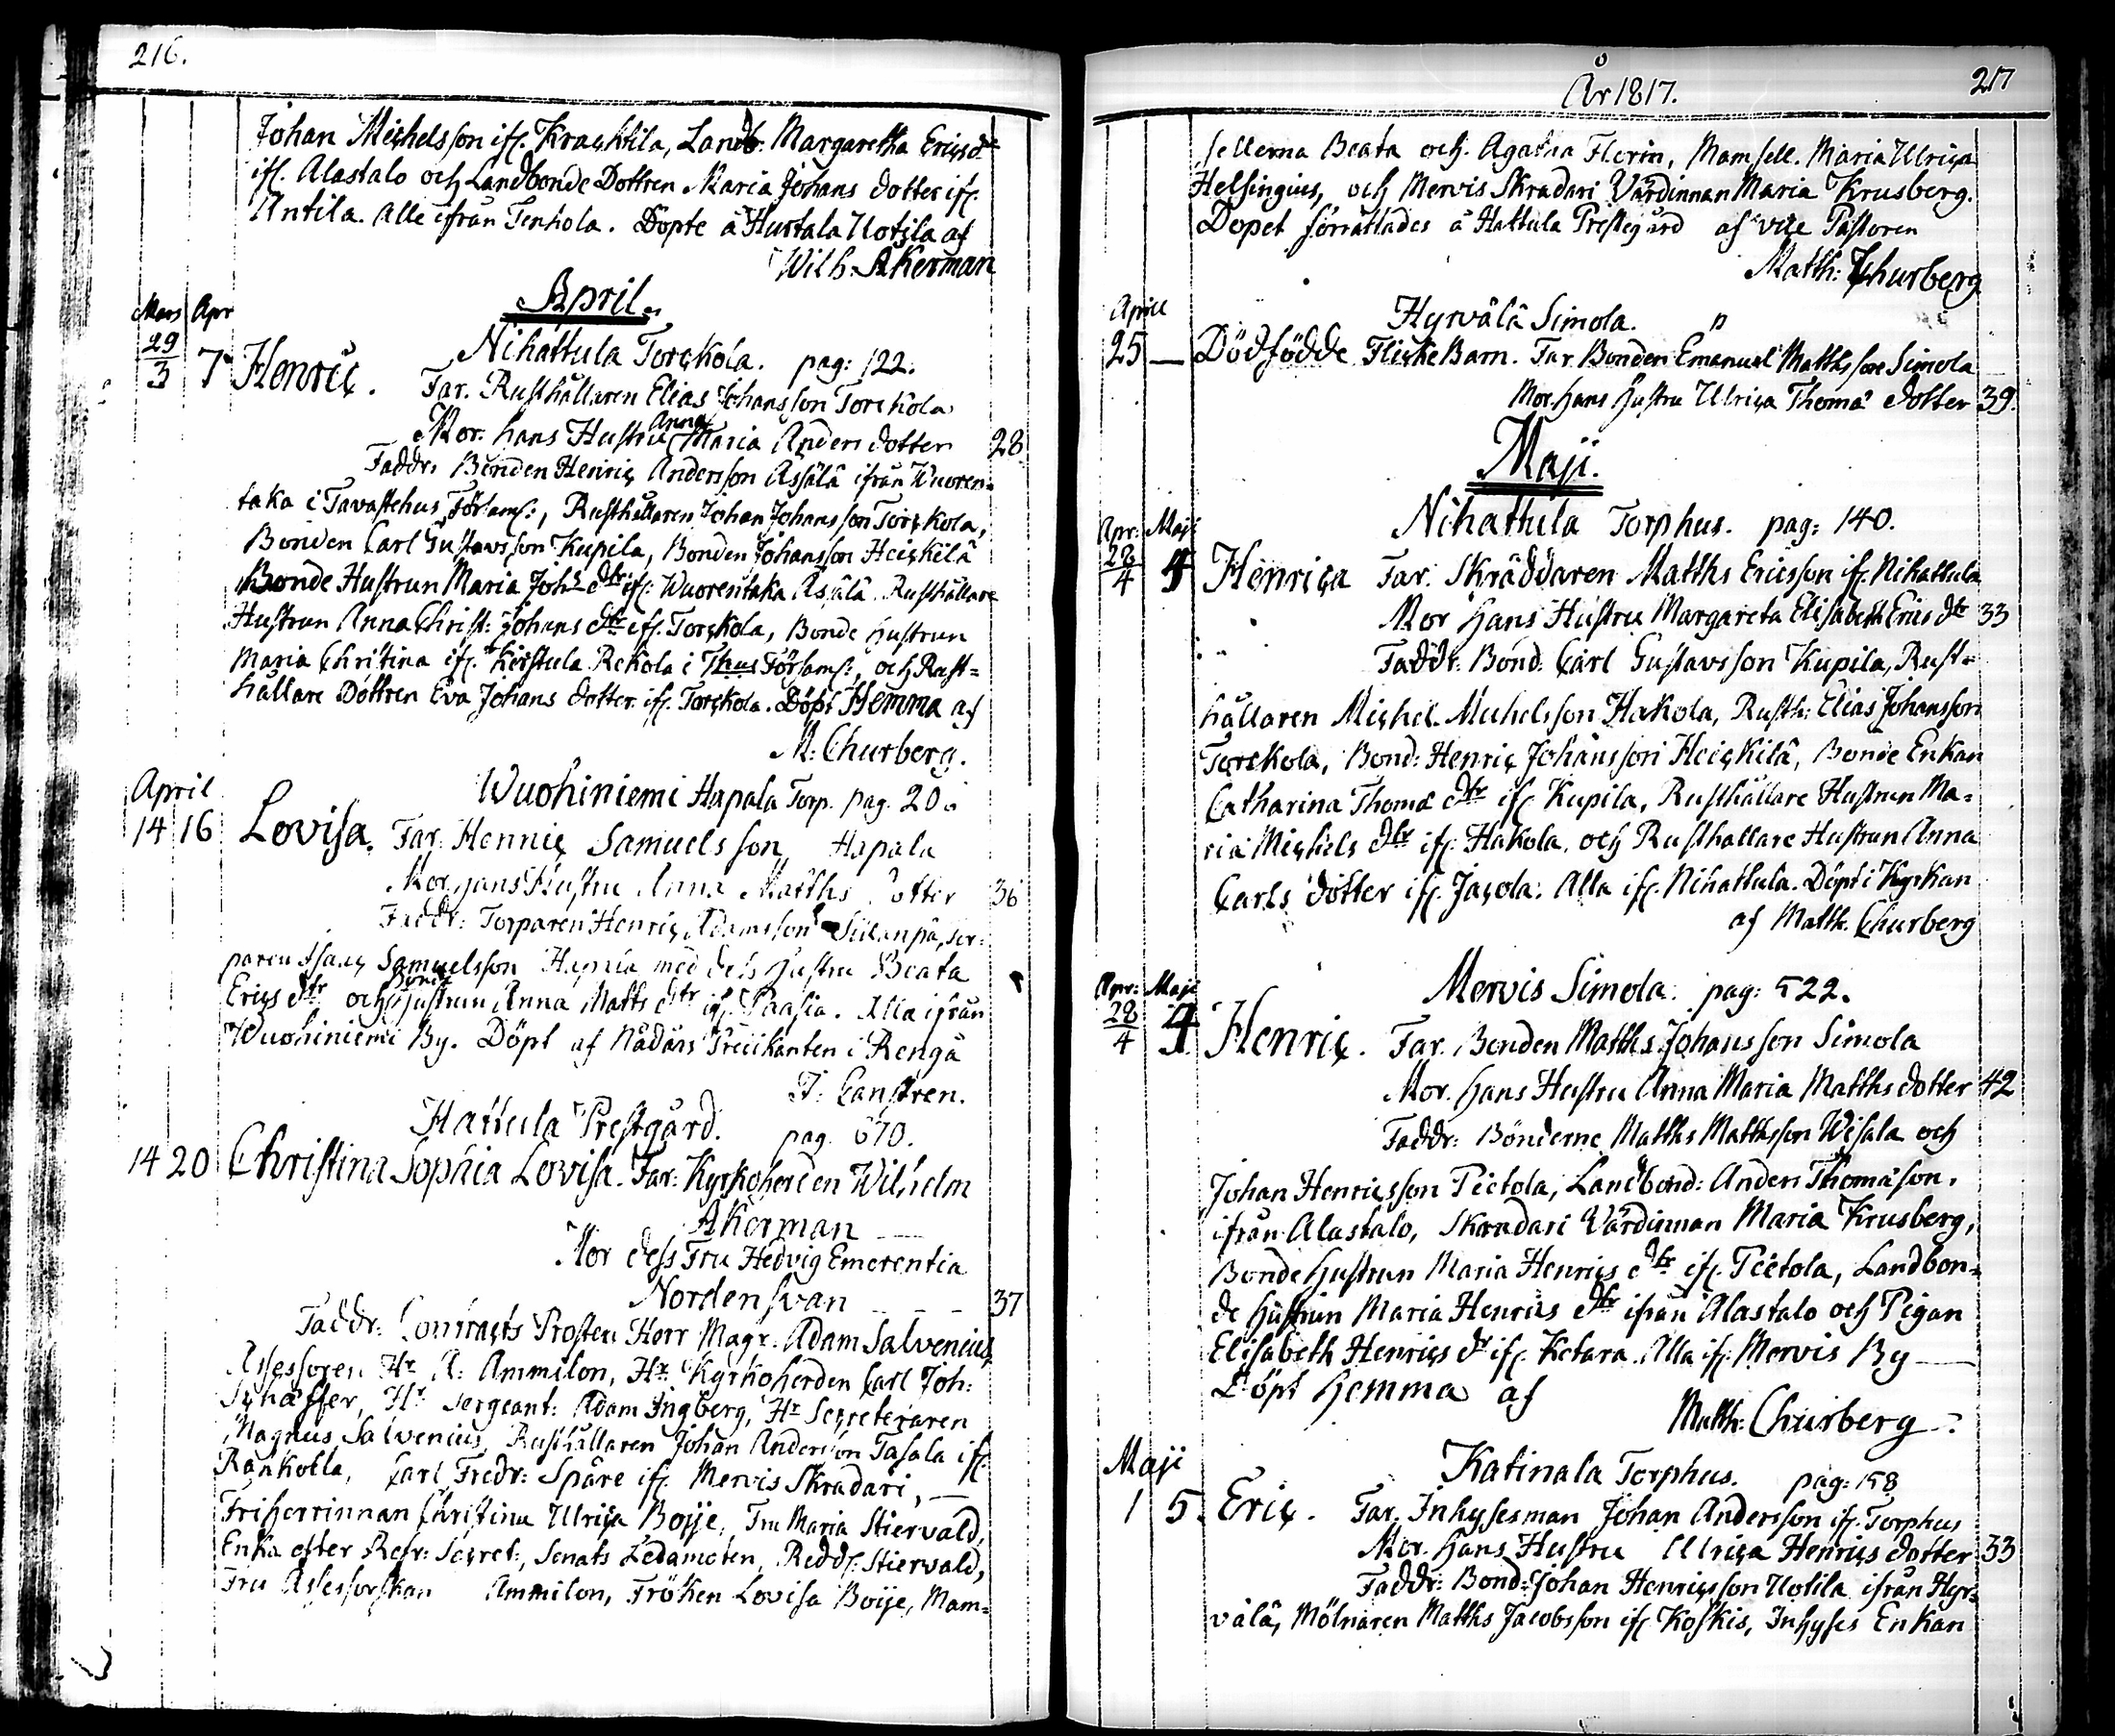 216.
Johan Michelsson ifr. Krachtila, Landb: Margaretha Ericsdr
ifr. Alastalo och Landbonde Dottren Maria Johans dotter ifr.
Antila. Alle ifrån Tenhola. Döpte å Hurtala Uotila af
Wilh: Åkerman
April.
Mars Apr
Nihattula Torckola. pag: 122.
29/3 7 Henric. Far. Rusthållaren Elias Johansson Torckola
Anna
Mor. hans Hustru Maria Anders dotter 28
Faddr: Bonden Henric Andersson Assälä ifrån Wuoren=
taka i Tavastehus Församl:, Rusthållaren Johan Johansson Torckola,
Bonden Carl Gustavsson Kupila, Bonden Johansson Heickilä
Bonde Hustrun Maria Johs dtr ifr: Wuorentaka Assälä Rusthållare
Hustrun Anna Christ: Johans dtr ifr. Torckola, Bonde hustrun
Maria Christina ifr. Kirstula Rekola i Thus Församl:, och Rust=
hållare Dottren Eva Johans dotter ifr. Torckola. Döpt Hemma af
M: Churberg.
April
Wuohiniemi Hapala Torp. pag. 20
14 16 Lovisa. Far: Hennic Samuelsson Hapala
Mor. hans Hustru Anna Matths dotter 36
Faddr: Torparen Henric Adamsson Siilanpä, Tor:
paren Isaac Samuelsson Hapala med dess hustru Beata
Bonde
Erics dtr och Hustrun Anna Matts dtr ifr. Paasia. Alla ifrån
Wuohiniemi By. Döpt af Nådårs Predikanten i Rengå
J: Canstren.
Hattula Prestgård. pag. 670.
14 20 Christina Sophia Lovisa. Far: Kyrkoherden Wilhelm
Åkerman
Mor dess Fru Hedvig Emerentia
Nordensvan 37
Faddr: Contracts Prosten Herr Magr. Adam Salvenius,
Assessoren Hr A: Ammilon, Hr Kyrkoherden Carl Joh:
Schæffer, Hr Sergeant: Adam Ingberg, Hr Secreteraren
Magnus Salvenius, Rusthållaren Johan Andersson Tasala ifr.
Rankolla, Carl Fredr: Spåre ifr. Mervis Skradari,
Friherrinnan Christina Ulrica Boije, Fru Maria Stiervald,
Enka efter Refr: Secret:, Senats Ledamoten, Redds: Stiervald,
Fru Assessorskan Ammilon, Fröken Lovisa Boije, Mam=
År 1817. 217
sellerna Beata och Agatha Florin, Mamsell. Maria Ulrica
Helsingius, och Mervis Skradari Värdinnan Maria Krusberg.
Dopet förrättades å Hattula Prestegård af vice Pastoren
Matth: Churberg
April
Hyrvälä Simola.
25 — Dödfödde Flicke Barn. Far Bonden Emanuel Matthsson Simola
Mor hans hustru Ulrica Thomæ dotter 39.
Maji.
Nihattula Torphus. pag: 140.
Apr: Maji
28/4 4 Henrica Far. Skräddaren Matths Ericsson ifr. Nihattula
Mor hans Hustru Margareta Elisabeth Erics dtr 33
Faddr: Bond: Carl Gustavsson Kupila, Rust=
hållaren Michel Michelsson Hakola, Rusth: Elias Johansson
Torckola, Bond: Henric Johansson Heickilä, Bonde Enkan
Catharina Thomæ dtr ifr Kupila, Rusthållare Hustrun Ma=
ria Michels dtr ifr. Hakola, och Rusthållare Hustrun Anna
Carls dotter ifr. Jacola. Alla ifr. Nihattula. Döpt i Kyrkan
af Matth. Churberg
Mervis Simola. pag: 522.
Apr: Maji
28/4 4 Henric. Far. Bonden Matths Johansson Simola
Mor. hans Hustru Anna Maria Matths dotter 42
Faddr: Bönderne Matths Matthsson Wisala och
Johan Henricsson Pietola, Landbond: Anders Thomæson.
ifrån Alastalo, Skradari Värdinnan Maria Krusberg,
Bonde hustrun Maria Henrics dtr ifr. Pietola, Landbon=
de hustrun Maria Henrics dtr ifrån Alastalo och Pigan
Elisabeth Henrics dr ifr. Ketara. Alla ifr. Mervis By —
Döpt hemma af
Matth: Churberg.
Maji
Katinala Torphus. pag: 158
1 5. Eric. Far. Inhysesman Johan Andersson ifr. Torphus
Mor. hans Hustru Ulrica Henrics dotter 33
Faddr: Bond: Johan Henricsson Uotila ifrån Hyr=
välä, Mölnaren Matths Jacobsson ifr Koskis, Inhyses Enkan